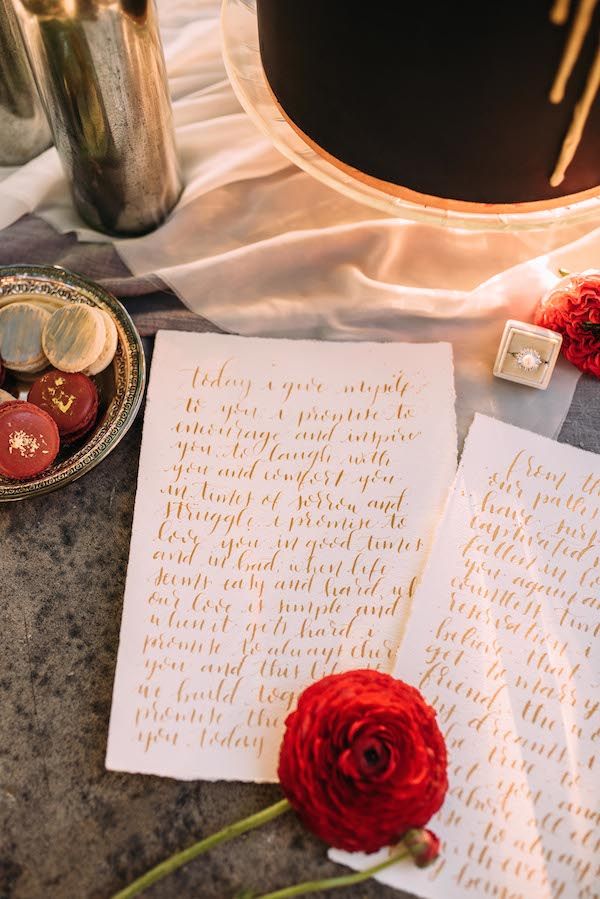 today i give myself
to you. i promise to
encourage and inspire
you, to laugh with
you and comfort you
in times of sorrow and
struggle. i promise to
love you in good times
and in bad, when life
seems easy and hard, wh
our love is simple and
when it gets hard. i
promise to always cher
you and this life
we build toge
promise the
you. today
from the
our paths
have surp
captivated
fallen in lo
you again an
countless tim
reservation. i
believe that
get to marry
friend. the
my dreams
true to
you and
to always
every
being